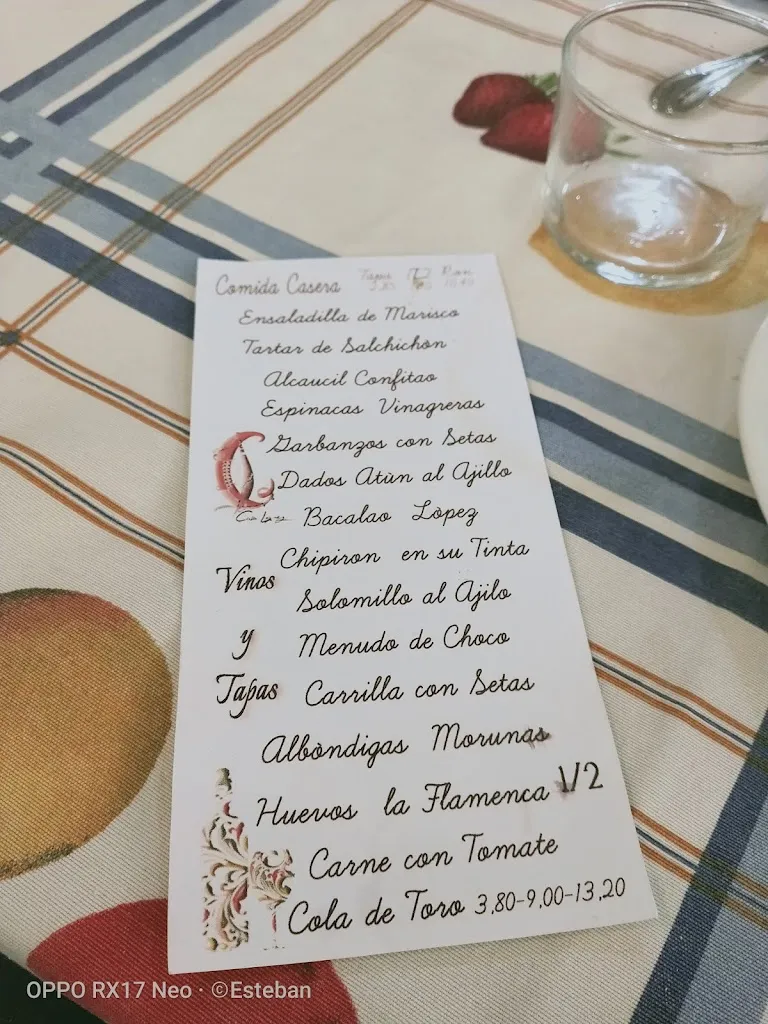 Comida Casera
Ensaladilla de Marisco
Tartar de Salchichon
Alcaucil Confitao
Espinacas Vinagreras
Garbanzos con Setas
Dados Atùn al Ajillo
Bacalao Lòpez
Chipiron en su Tinta
Solomillo al Ajilo
Menudo de Choco
Carrilla con Setas
Albòndigas Morunas
Huevos la Flamenca 1/2
Carne con Tomate
Cola de Toro 3,80-9,00-13,20
Vinos
y
Tapas
OPPO RX17 Neo · ©Esteban